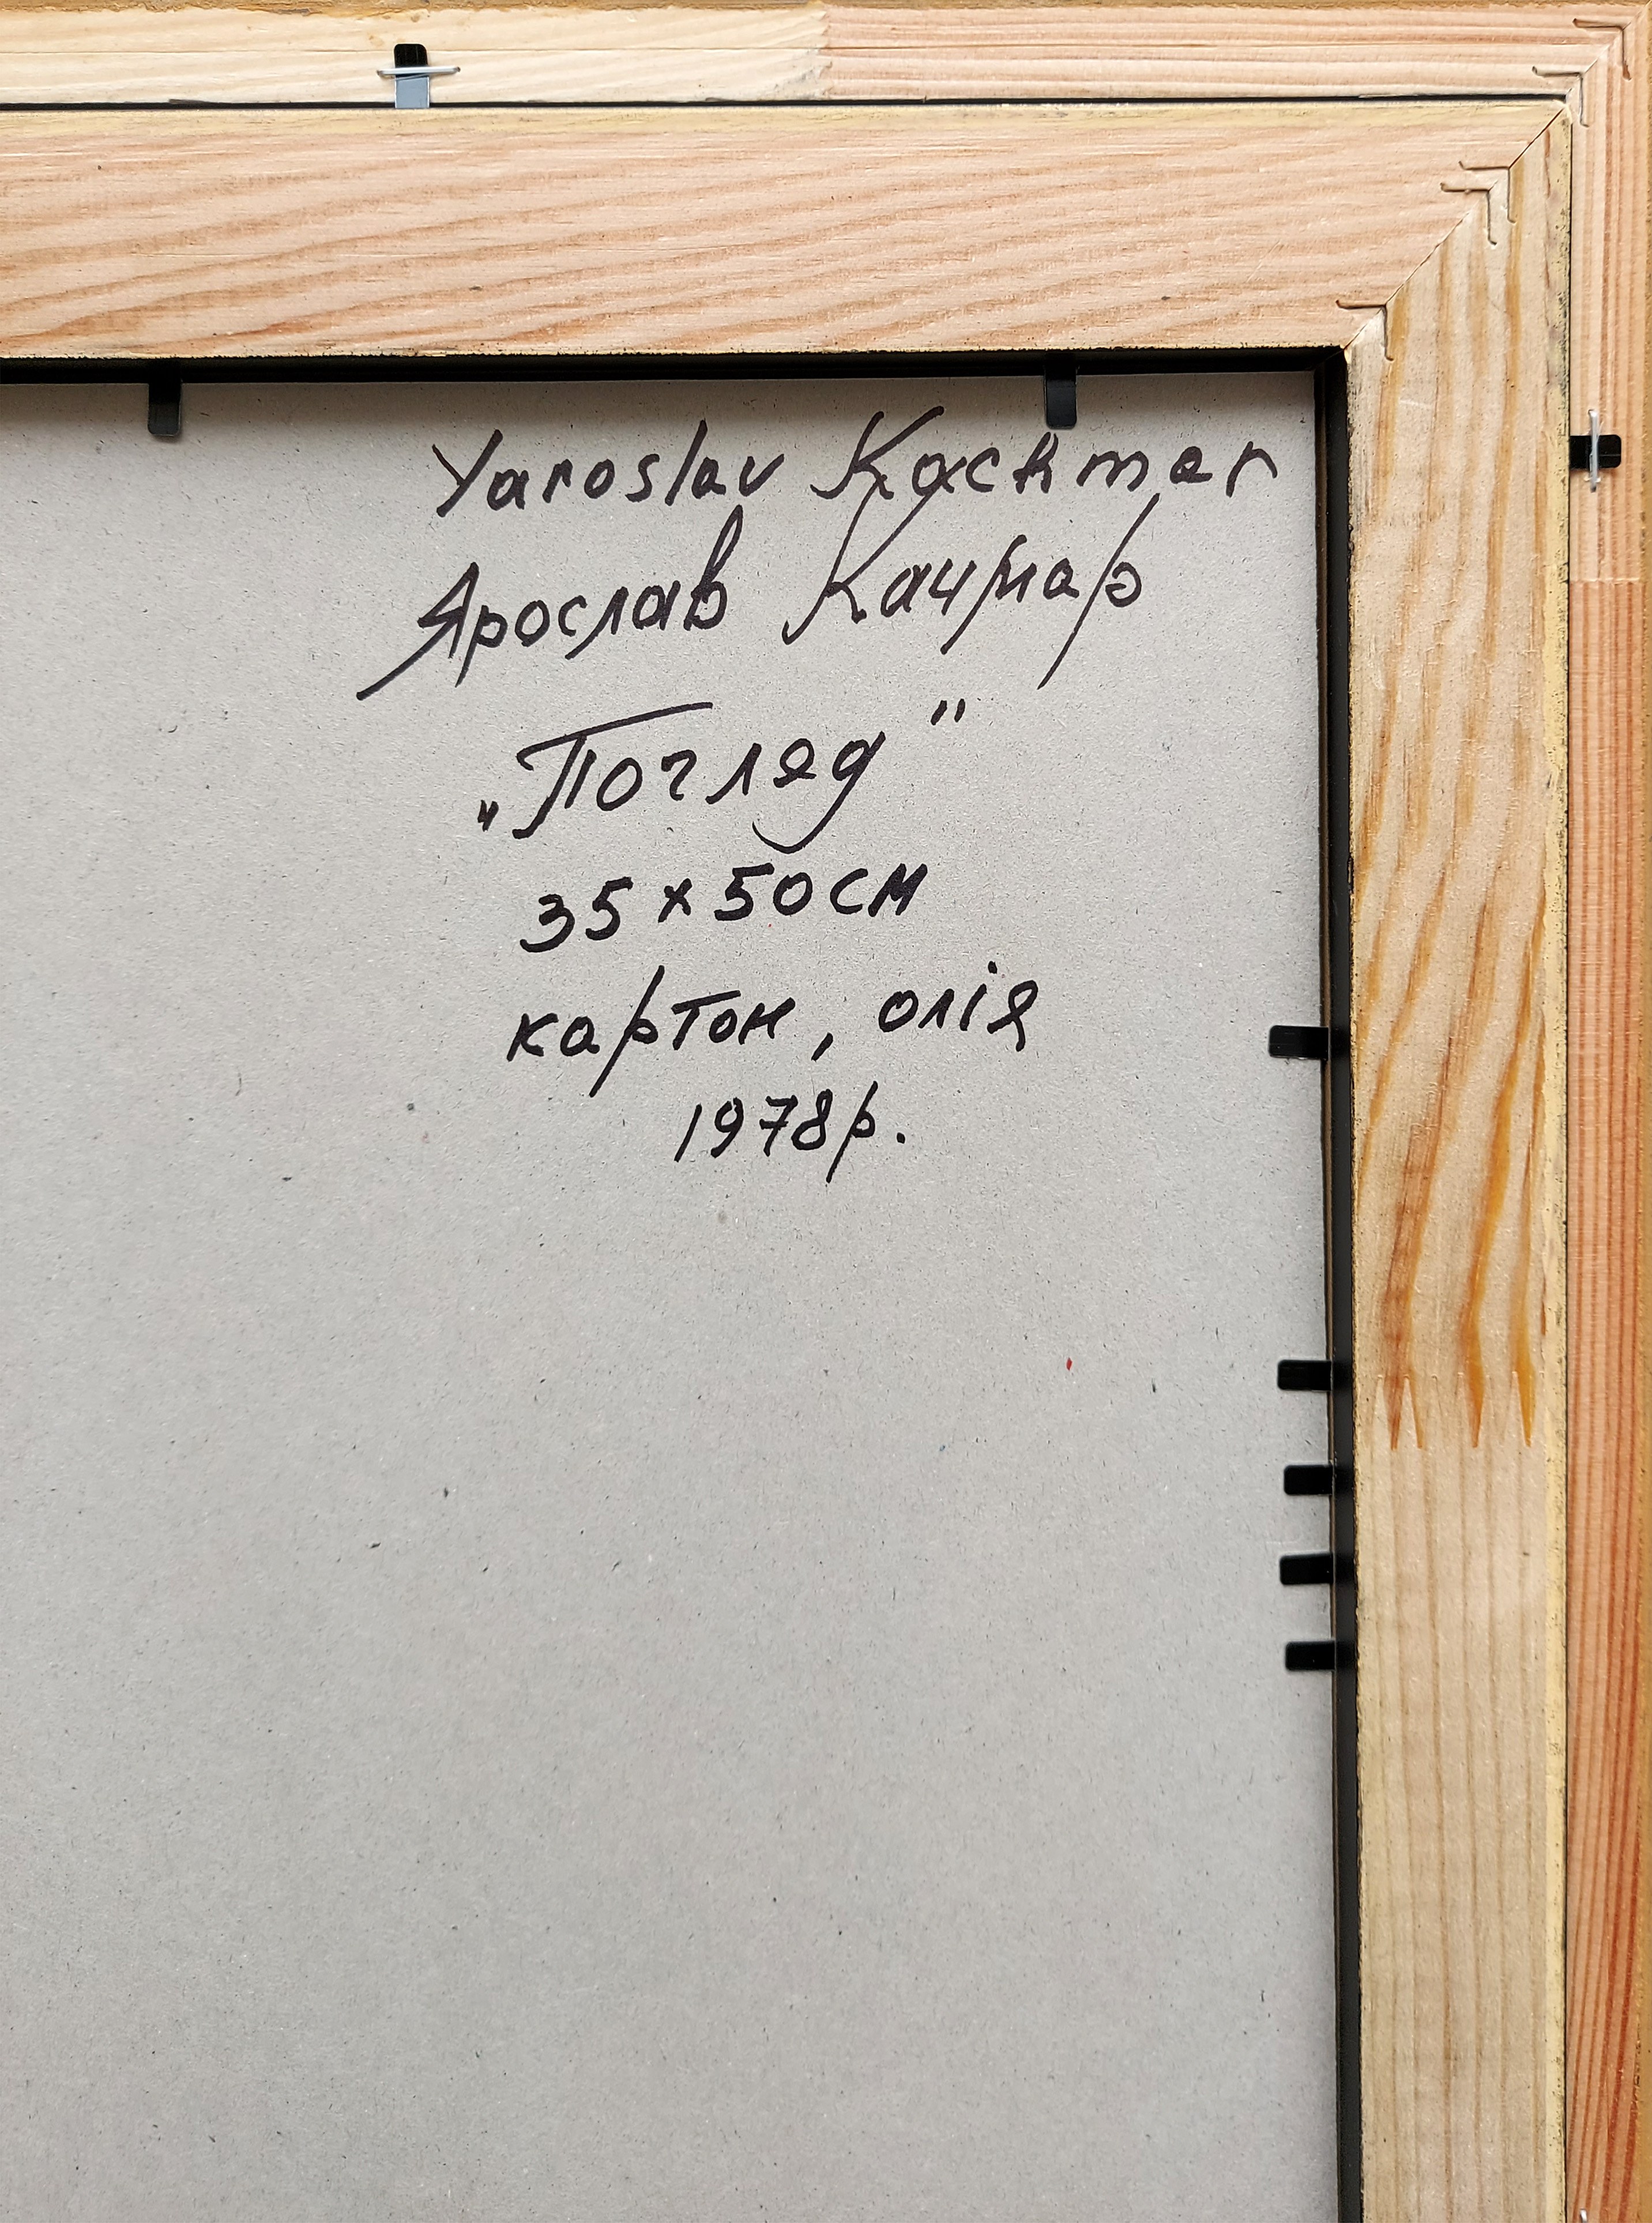 Yaroslav Kachmar
Ярослав Качмар
„Погляд"
35×50см
картон, олія
1978р.